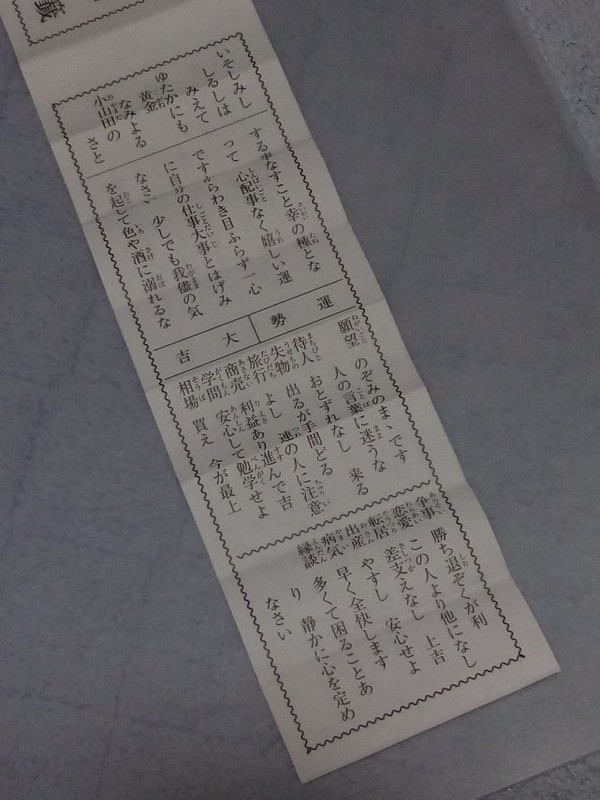 籤
いそしみし
しるしは
みえて
ゆたかにも
黄金
なみよる
小山田の
さと
する事なすこと幸の種とな
って 心配事なく嬉しい運
ですからわき目ふらず一心
に自分の仕事大事とはげみ
なさい 少しでも我儘の気
を起して色や酒に溺れるな
運勢
大吉
願望 のぞみのまゝです
人の言葉に迷うな
待人 おとずれなし 来る
失物 出るが手間どる
旅行 よし 連の人に注意
商売 利益あり進んで吉
学問 安心して勉学せよ
相場 買え 今が最上
争事 勝ち退ぞくが利
恋愛 この人より他になし
転居 差支えなし 上吉
出産 やすし 安心せよ
病気 早く全快します
縁談 多くて困ることあ
り 静かに心を定め
なさい